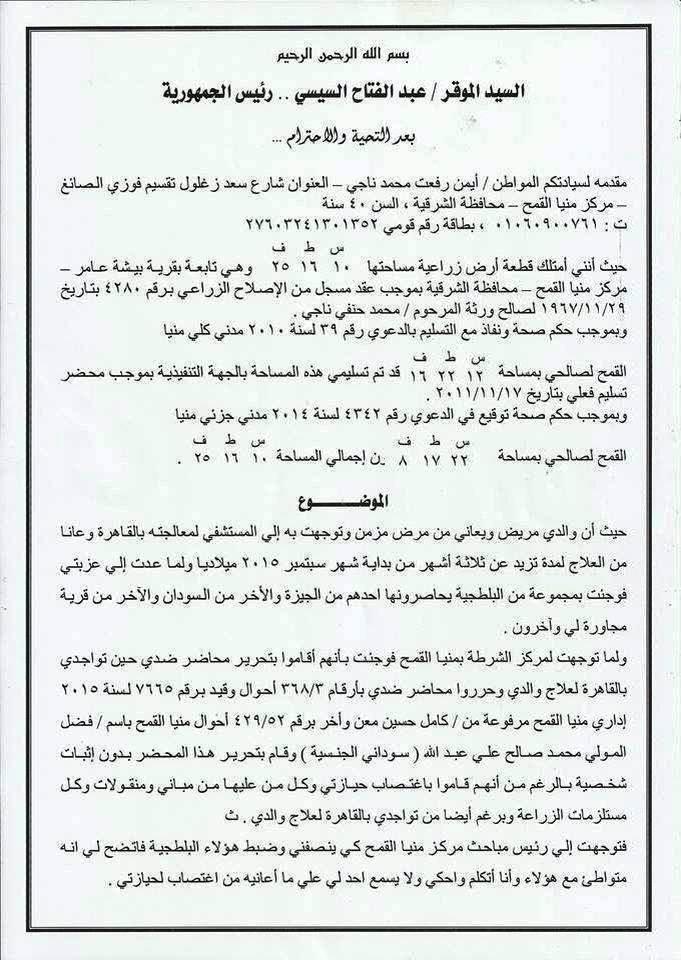 بسم الله الرحمن الرحيم
السيد الموقر / عبد الفتاح السيسي .. رئيس الجمهورية
بعد التحية والاحترام ...
مقدمه لسيادتكم المواطن / أيمن رفعت محمد ناجي – العنوان شارع سعد زغلول تقسيم فوزي الصائغ
– مركز منيا القمح – محافظة الشرقية ، السن ٤٠ سنة
ت : ٠١٠٦٠٩٠٠٧٦١ ، بطاقة رقم قومي ٢٧٦٠٣٢٤١٣٠١٣٥٢
س ط ف
حيث أنني أمتلك قطعة أرض زراعية مساحتها ١٠ ١٦ ٢٥ وهي تابعة بقرية بيشة عامر –
مركز منيا القمح – محافظة الشرقية بموجب عقد مسجل من الإصلاح الزراعي برقم ٤٢٨٠ بتاريخ
١٩٦٧/١١/٢٩ لصالح ورثة المرحوم / محمد حنفي ناجي .
وبموجب حكم صحة ونفاذ مع التسليم بالدعوي رقم ٣٩ لسنة ٢٠١٠ مدني كلي منيا
س ط ف
القمح لصالحي بمساحة ١٢ ٢٢ ١٦ قد تم تسليمي هذه المساحة بالجهة التنفيذية بموجب محضر
تسليم فعلي بتاريخ ٢٠١١/١١/١٧ .
وبموجب حكم صحة توقيع في الدعوي رقم ٤٣٤٢ لسنة ٢٠١٤ مدني جزئي منيا
س ط ف س ط ف
القمح لصالحي بمساحة ٢٢ ١٧ ٨ ن إجمالي المساحة ١٠ ١٦ ٢٥ .
الموضـــــوع
حيث أن والدي مريض ويعاني من مرض مزمن وتوجهت به إلي المستشفي لمعالجته بالقاهرة وعانا
من العلاج لمدة تزيد عن ثلاثة أشهر من بداية شهر سبتمبر ٢٠١٥ ميلاديا ولما عدت إلي عزبتي
فوجئت بمجموعة من البلطجية يحاصرونها احدهم من الجيزة والأخر من السودان والآخر من قرية
مجاورة لي وآخرون .
ولما توجهت لمركز الشرطة بمنيا القمح فوجئت بأنهم أقاموا بتحرير محاضر ضدي حين تواجدي
بالقاهرة لعلاج والدي وحرروا محاضر ضدي بأرقام ٣٦٨/٣ أحوال وقيد برقم ٧٦٦٥ لسنة ٢٠١٥
إداري منيا القمح مرفوعة من / كامل حسين معن وأخر برقم ٤٢٩/٥٢ أحوال منيا القمح باسم / فضل
المولي محمد صالح علي عبد الله ( سوداني الجنسية ) وقام بتحرير هذا المحضر بدون إثبات
شخصية بالرغم من أنهم قاموا باغتصاب حيازتي وكل من عليها من مباني ومنقولات وكل
مستلزمات الزراعة وبرغم أيضا من تواجدي بالقاهرة لعلاج والدي . ث
فتوجهت إلي رئيس مباحث مركز منيا القمح كي ينصفني وضبط هؤلاء البلطجية فاتضح لي انه
متواطئ مع هؤلاء وأنا أتكلم واحكي ولا يسمع احد لي علي ما أعانيه من اغتصاب لحيازتي .